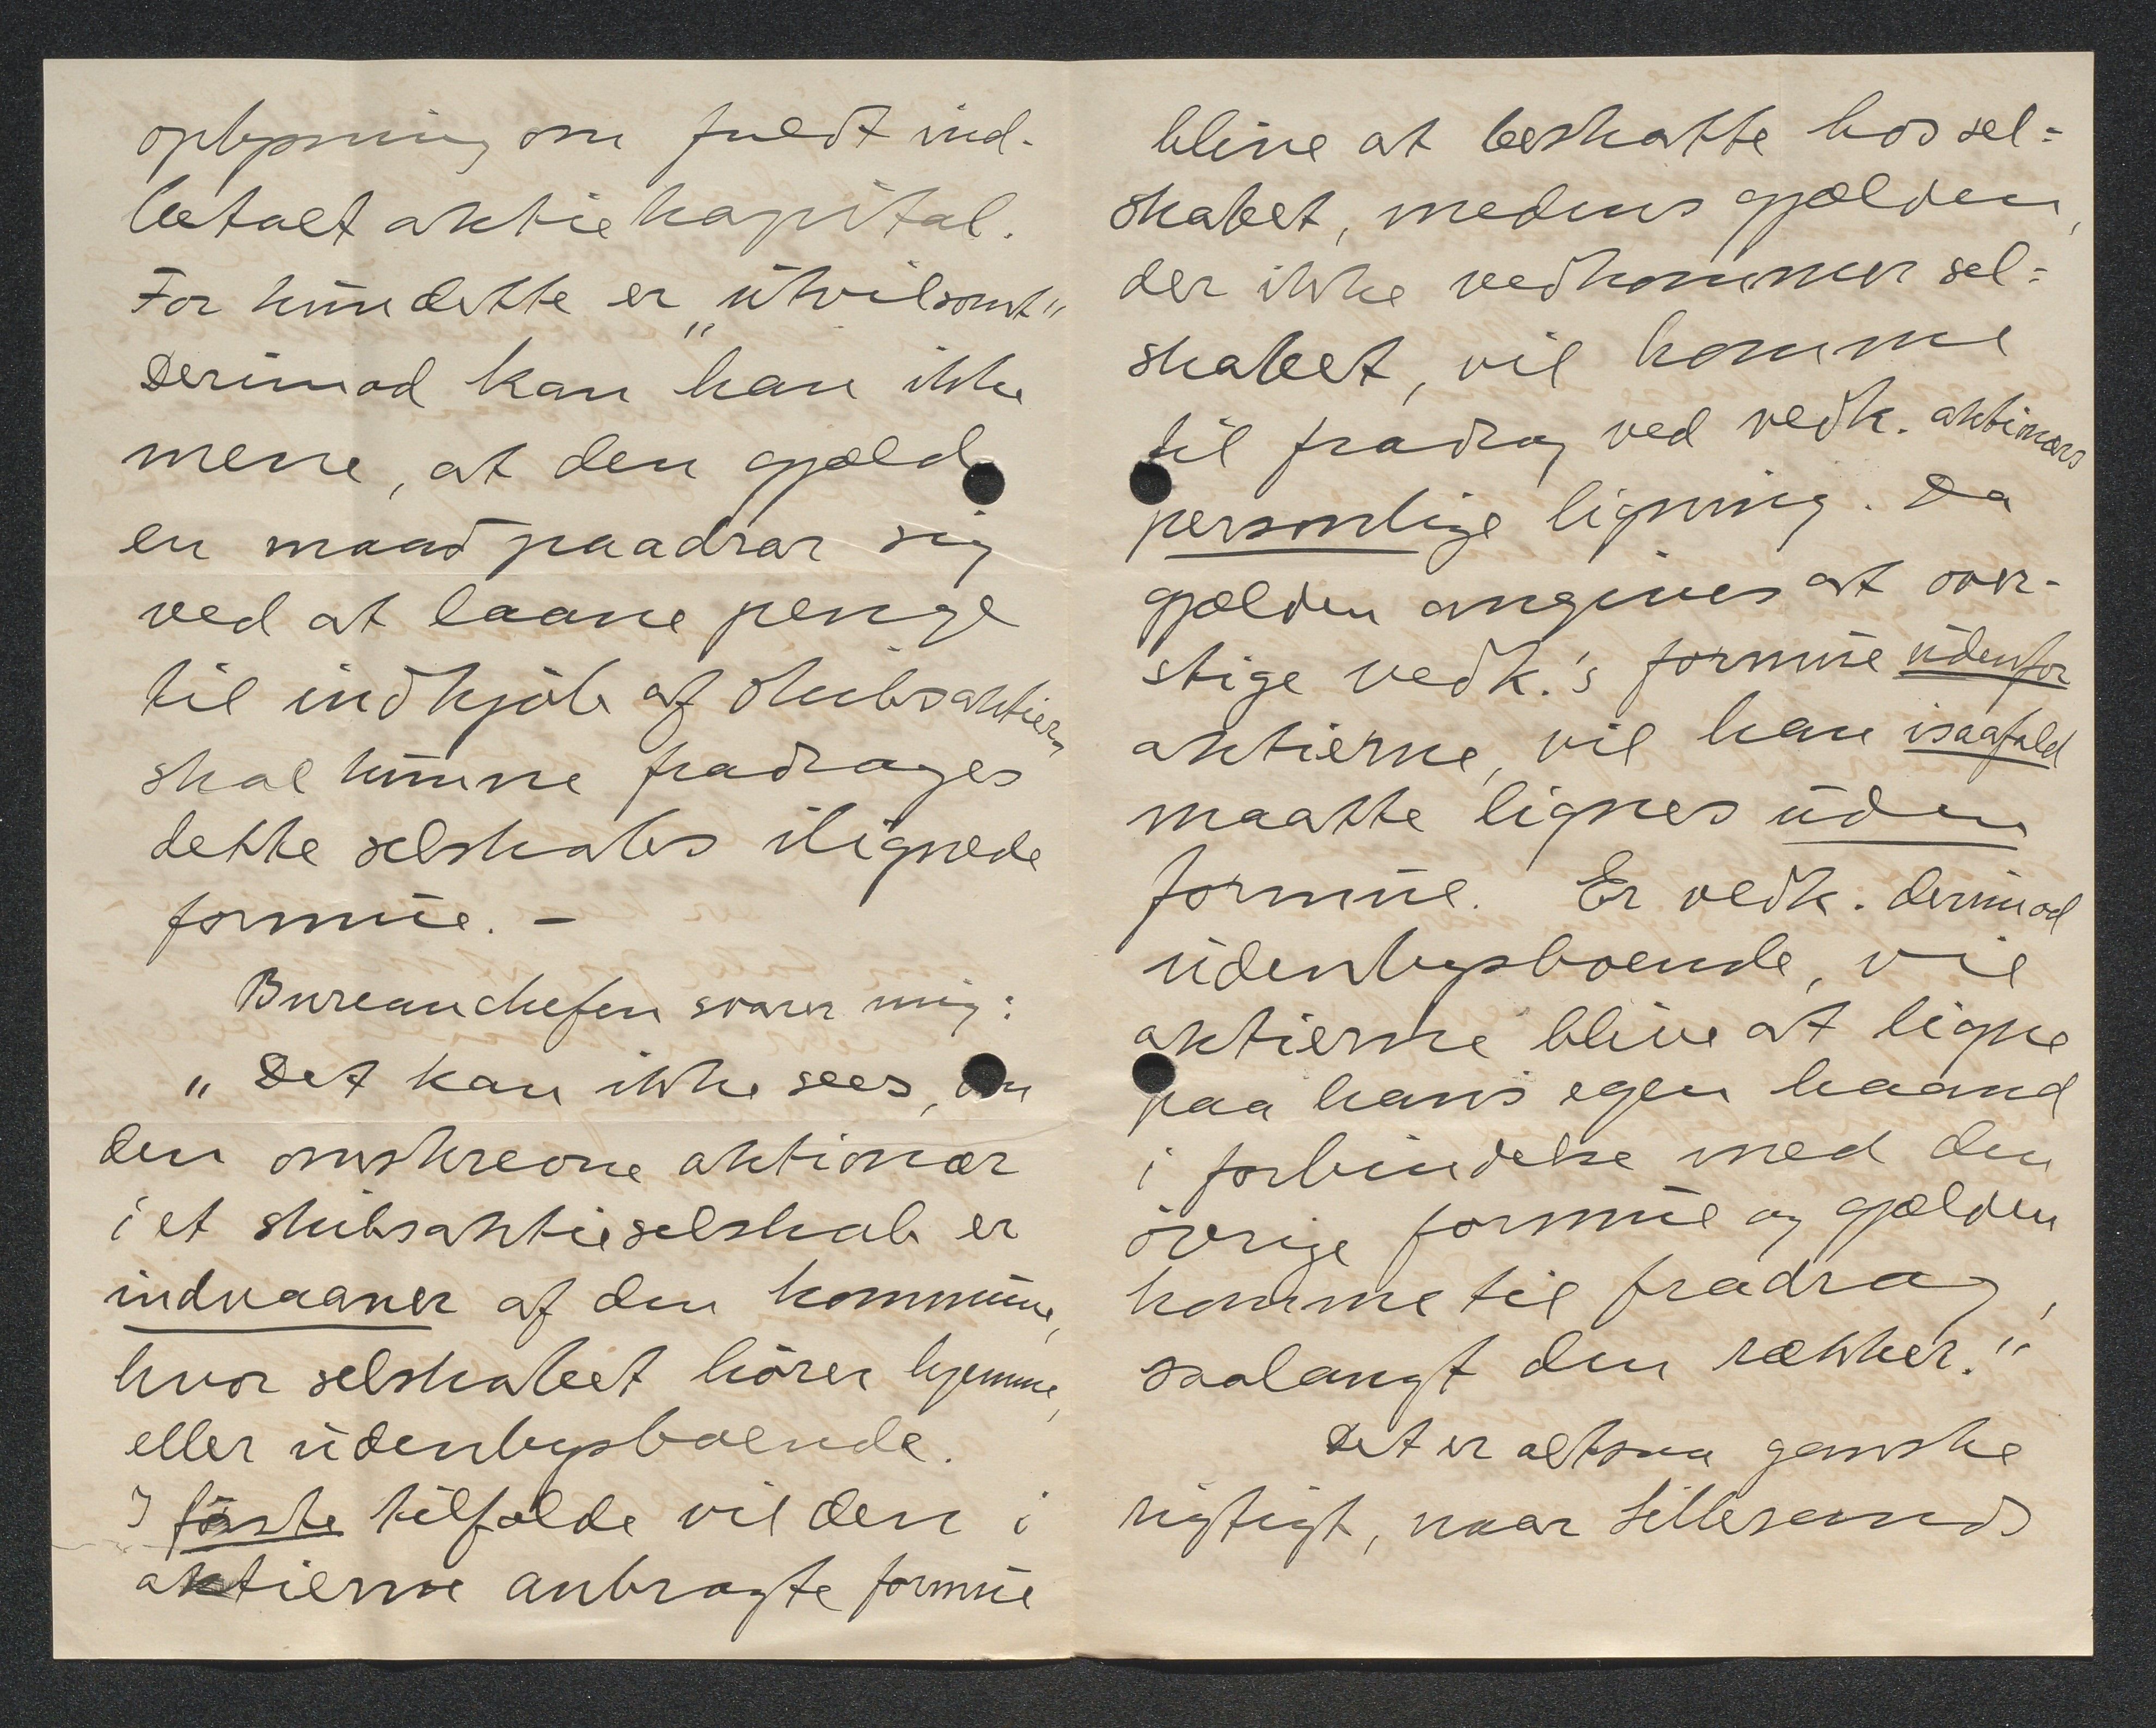 oplysning om fuldt ind-
betalt aktiekapital.
For kun dette er „utvilsomt“
Derimod kan han ikke
mene, at den gjæld
en mand paadrar sig
ved at laane penge
til indkjöb af skibsaktier,
skal kunne fradrages
dette selskabs ilignede
formue. –
Bureauchefen svarer mig:
„Det kan ikke sees, om
den omskrevne aktionær
i et skibsaktieselskab er
indvaaner af den kommune,
hvor selskabet hörer hjemme,
eller udenbysboende.
I förste tilfælde vil den i
aktierne anbragte formue
blive at beskatte hos sel=
skabet, medens gjælden,
der ikke vedkommer sel=
skabet, vil komme
til fradrag ved vedk. aktionærs
personlige ligning. Da
gjælden angives at over-
stige vedk.'s formue udenfor
aktierne, vil han isaafald
maatte lignes uden
formue. Er vedk. derimod
udenbysboende, vil
aktierne blive at ligne
paa hans egen haand
i forbindelse med den
övrige formue og gjælden
komme til fradrag,
saalangt den rækker.“
Det er altsaa ganske
rigtigt, naar Lillesands